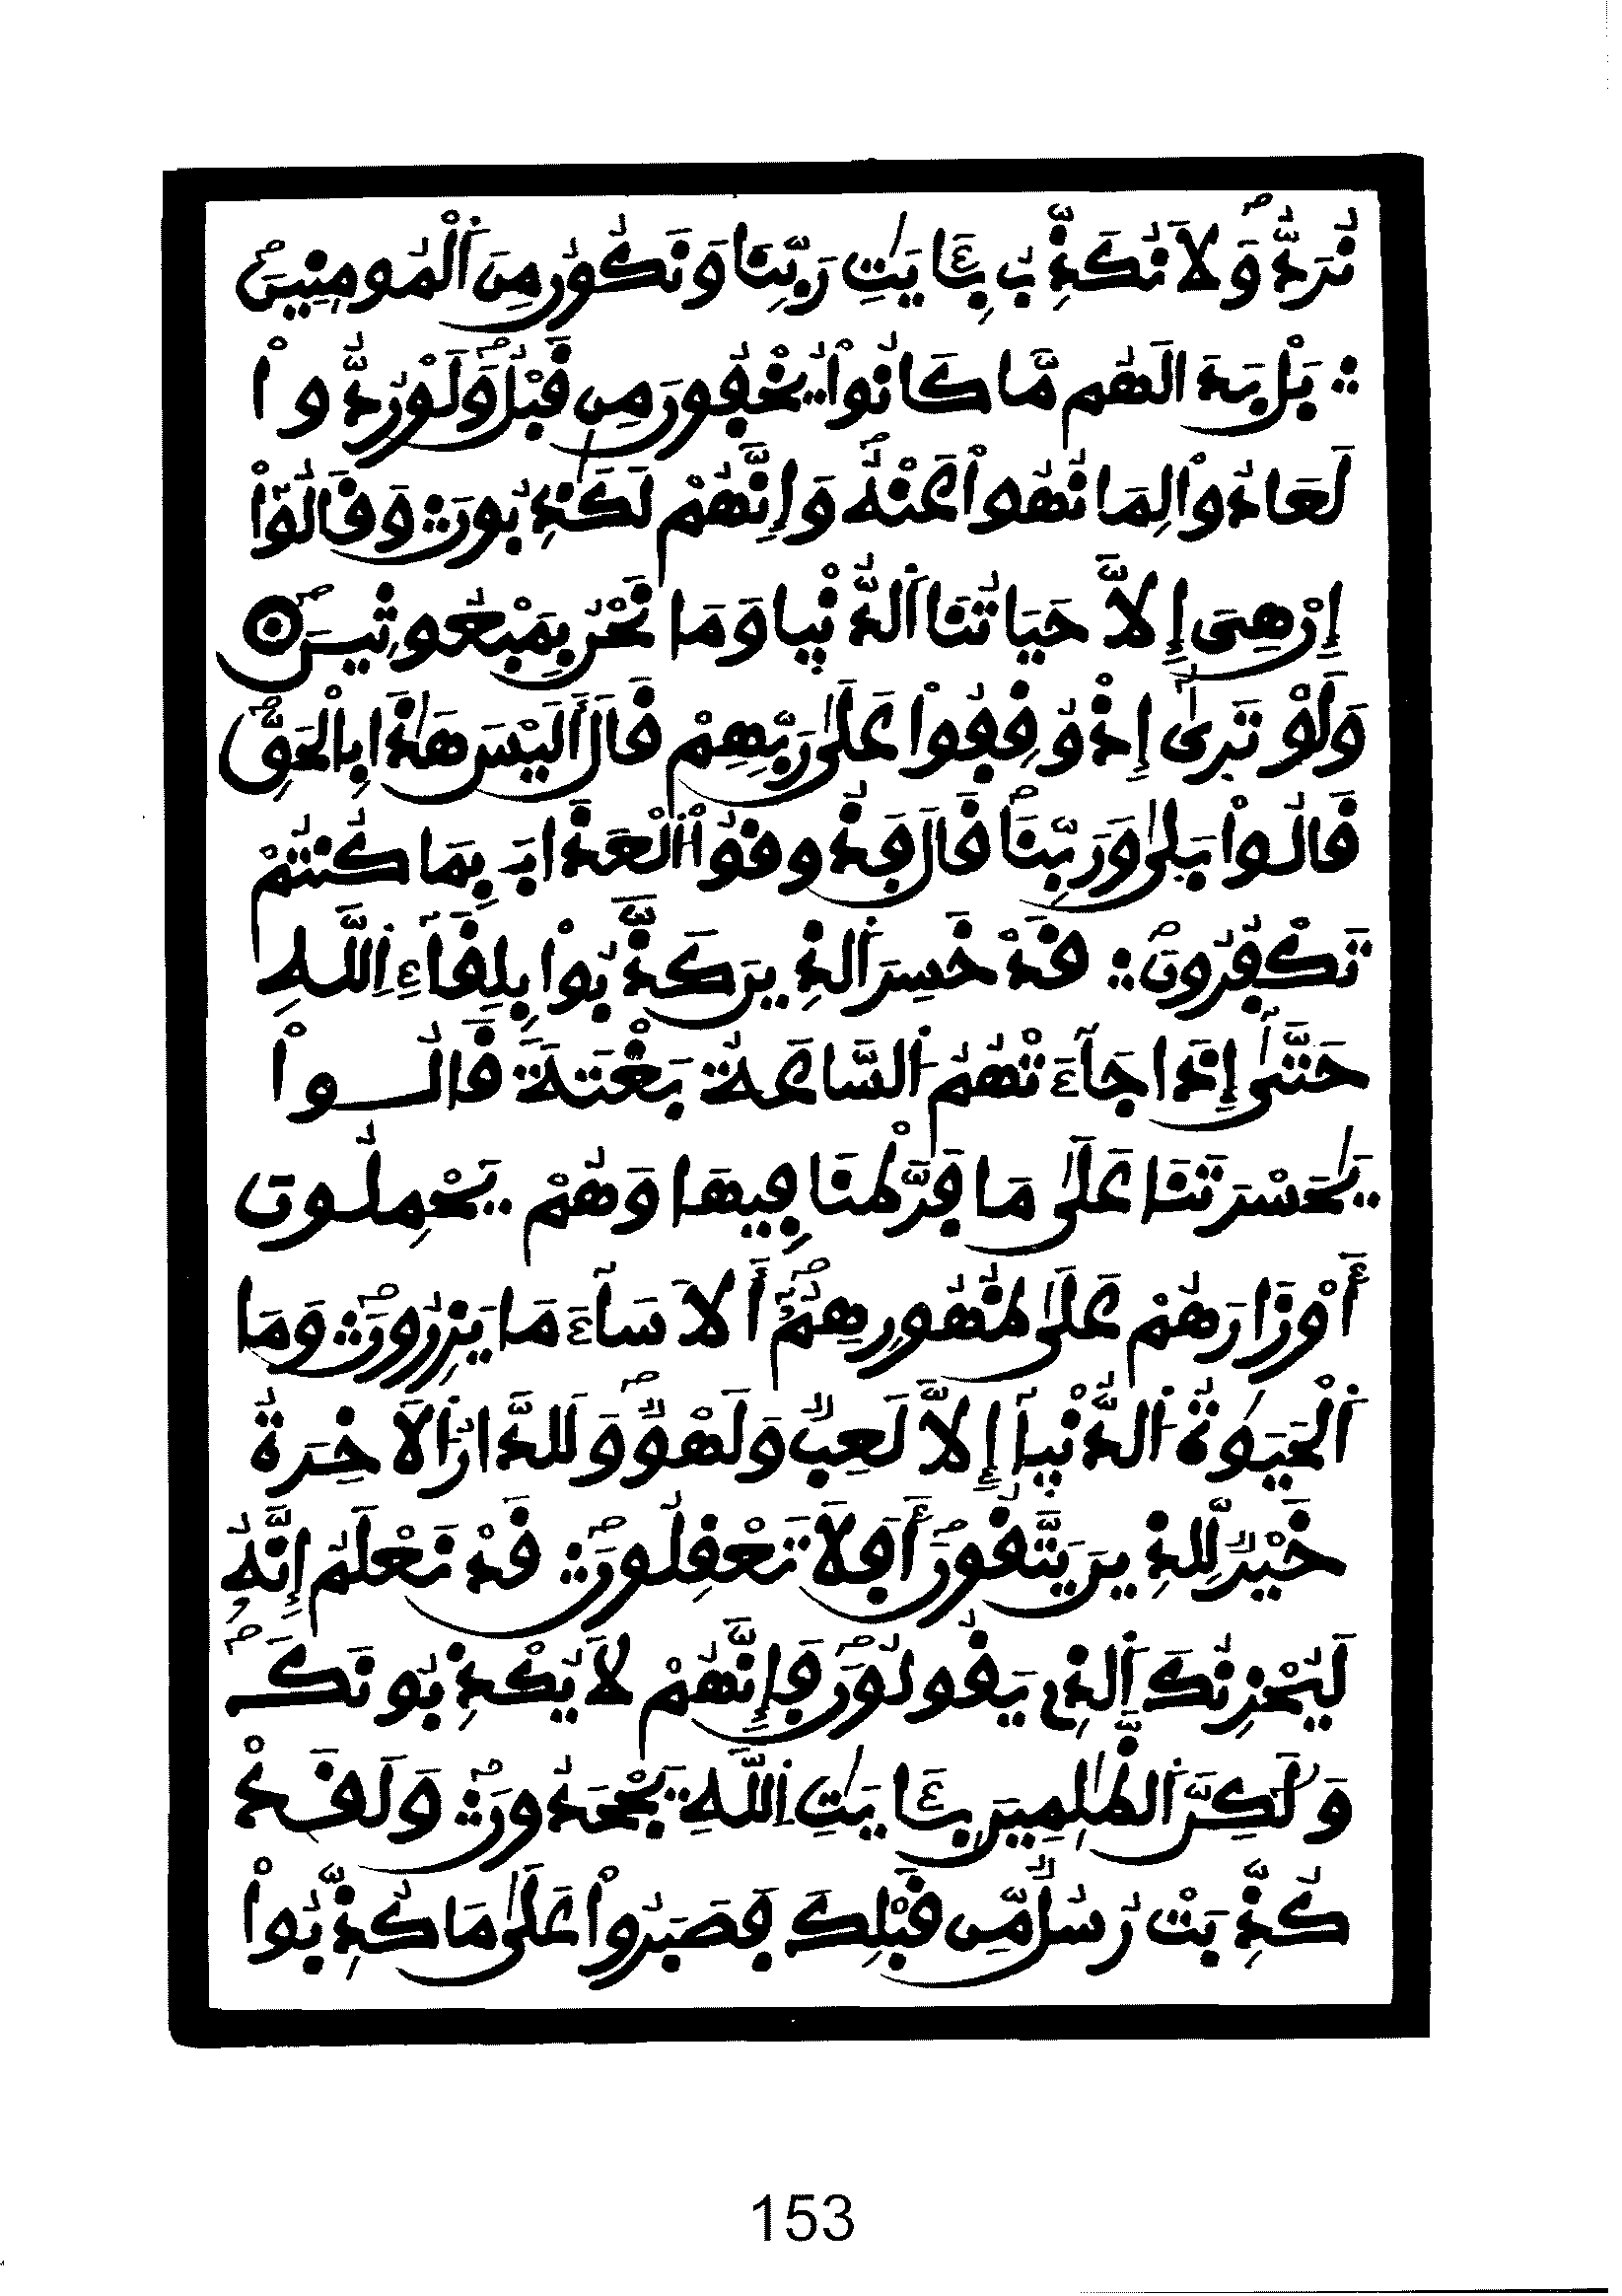 نُرَدُّ وَلَا نُكَذِّبُ بِـَٔايَٰتِ رَبِّنَا وَنَكُونُ مِنَ ٱلْمُومِنِينَ
بَلْ بَدَا لَهُم مَّا كَانُواْ يُخْفُونَ مِن قَبْلُ وَلَوْ رُدُّواْ
لَعَادُواْ لِمَا نُهُواْ عَنْهُ وَإِنَّهُمْ لَكَٰذِبُونَ وَقَالُوٓاْ
إِنْ هِىَ إِلَّا حَيَاتُنَا ٱلدُّنْيا وَمَا نَحْنُ بِمَبْعُوثِينَ
وَلَوْ تَرَىٰٓ إِذْ وُقِفُواْ عَلَىٰ رَبِّهِمْ قَالَ أَلَيْسَ هَٰذَا بِالْحَقِّ
قَالُواْ بَلَىٰ وَرَبِّنَا قَالَ فَذُوقُواْ ٱلْعَذَابَ بِمَا كُنتُمْ
تَكْفُرُونَ قَدْ خَسِرَ ٱلذِينَ كَذَّبُواْ بِلِقَآءِ ٱللَّهِ
حَتَّىٰٓ إِذَا جَآءَتْهُمُ ٱلسَّاعَةُ بَغْتَةً قَالُواْ
يَٰحَسْرَتَنَا عَلَىٰ مَا فَرَّطْنَا فِيهَا وَهُمْ يَحْمِلُونَ
أَوْزَارَهُمْ عَلَىٰ ظُهُورِهِمُۥٓ أَلَا سَآءَ مَا يَزِرُونَ وَمَا
ٱلْحَيَوٰةُ ٱلدُّنْيآ إِلَّا لَعِبٌ وَلَهْوٌ وَلَلدَّارُ ٱلَاخِرَةُ
خَيْرٌ لِّلذِينَ يَتَّقُونَ أَفَلَا تَعْقِلُونَ قَدْ نَعْلَمُ إِنَّهُۥ
لَيُحْزِنُكَ ٱلذِى يَقُولُونَ فَإِنَّهُمْ لَا يُكْذِبُونَكَ
وَلَٰكِنَّ ٱلظَّٰلِمِينَ بِـَٔايَٰتِ ٱللَّهِ يَجْحَدُونَ وَلَقَدْ
كُذِّبَتْ رُسُلٌ مِّن قَبْلِكَ فَصَبَرُواْ عَلَىٰ مَا كُذِّبُواْ
153